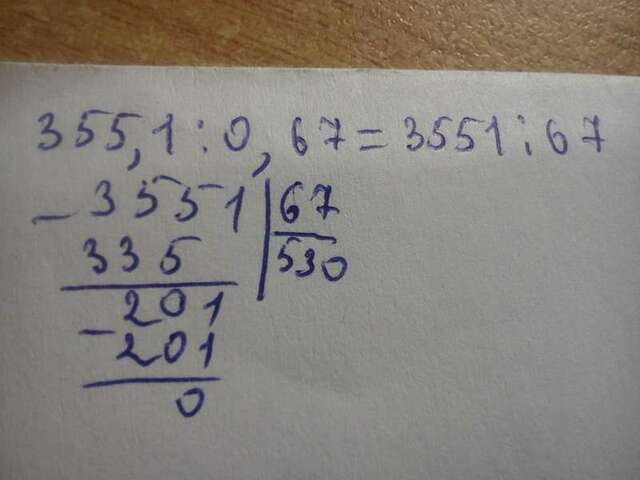 355,1:0,67=3551:67
-3551|67
335 530
-201
201
0